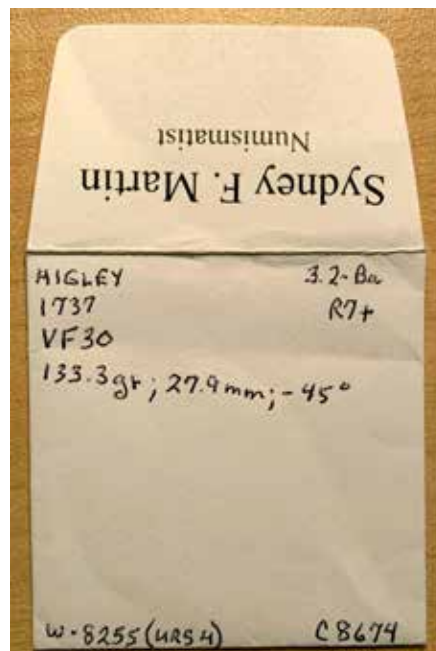 Sydney F. Martin
Numismatist
HIGLEY 3.2-Ba
1737 R7+
VF30
133.3gr; 27.9mm; -45°
W-8255 (URS4) C8674